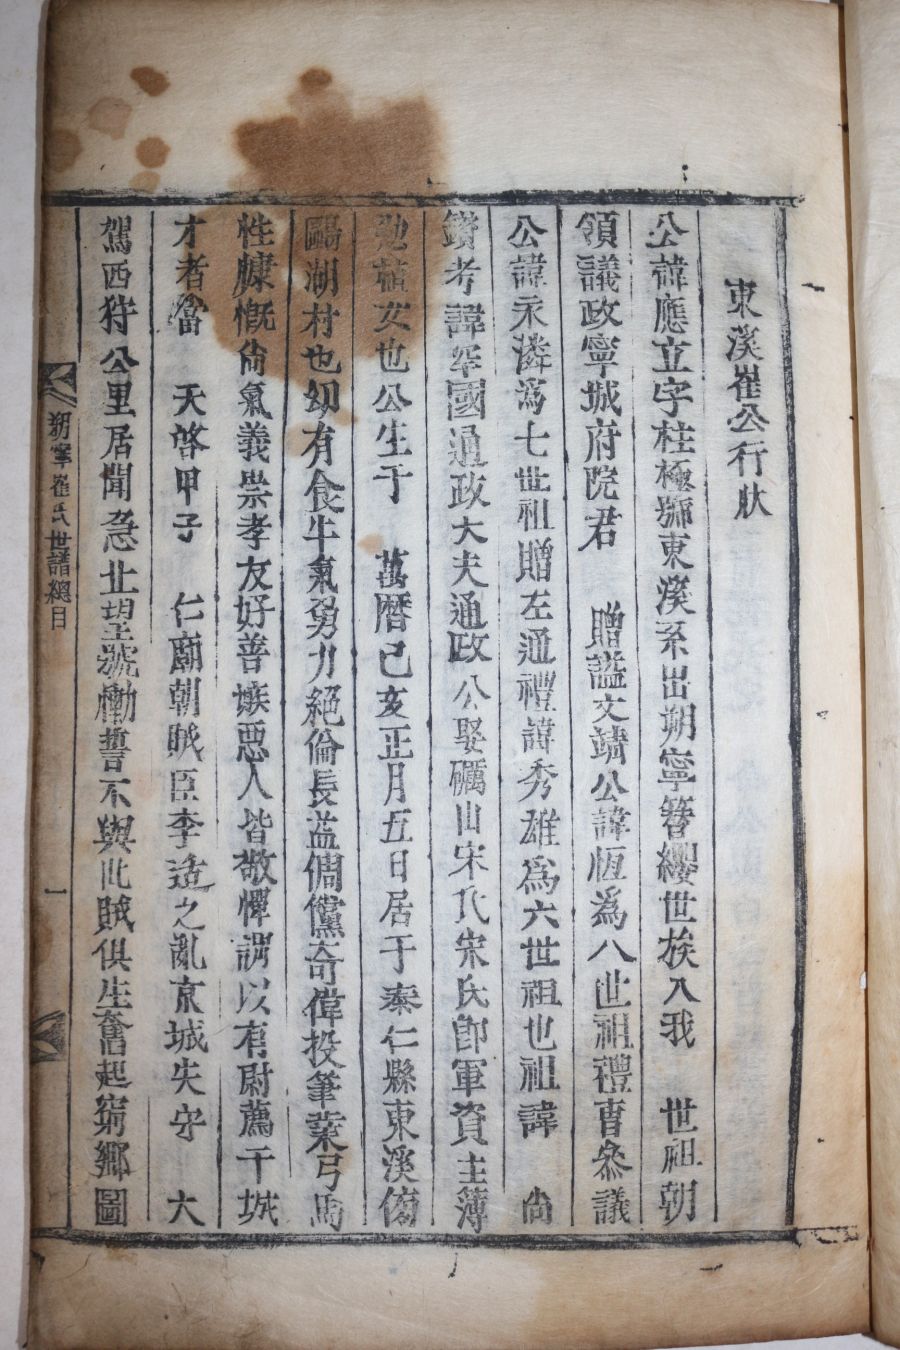 東溪崔公行狀
公諱應立字柱極號東溪系出朔寧簪纓世族入我 世祖朝
領議政寧城府院君 贈謚文靖公諱恆為八世祖禮曹參議
公諱永潾為七世祖贈左通禮諱秀雄為六世祖也祖諱 尙
鑽考諱軍國通政大夫通政公娶礪山宋氏宋氏卽軍資主簿
勉植女也公生于 萬曆己亥正月五日居于泰仁縣東溪傍
鷗湖村也幼有食牛氣勇力絕倫長益倜儻奇偉投筆業弓馬
性慷慨尙氣義崇孝友好善嫉惡人皆敬憚謂以有尉薦干城
才者當 天啓甲子 仁廟朝賊臣李适之亂京城失守 大
駕西狩公里居聞急北望號慟誓不與此賊俱生奮起窮鄉圖
朔寧崔氏世譜總目
一